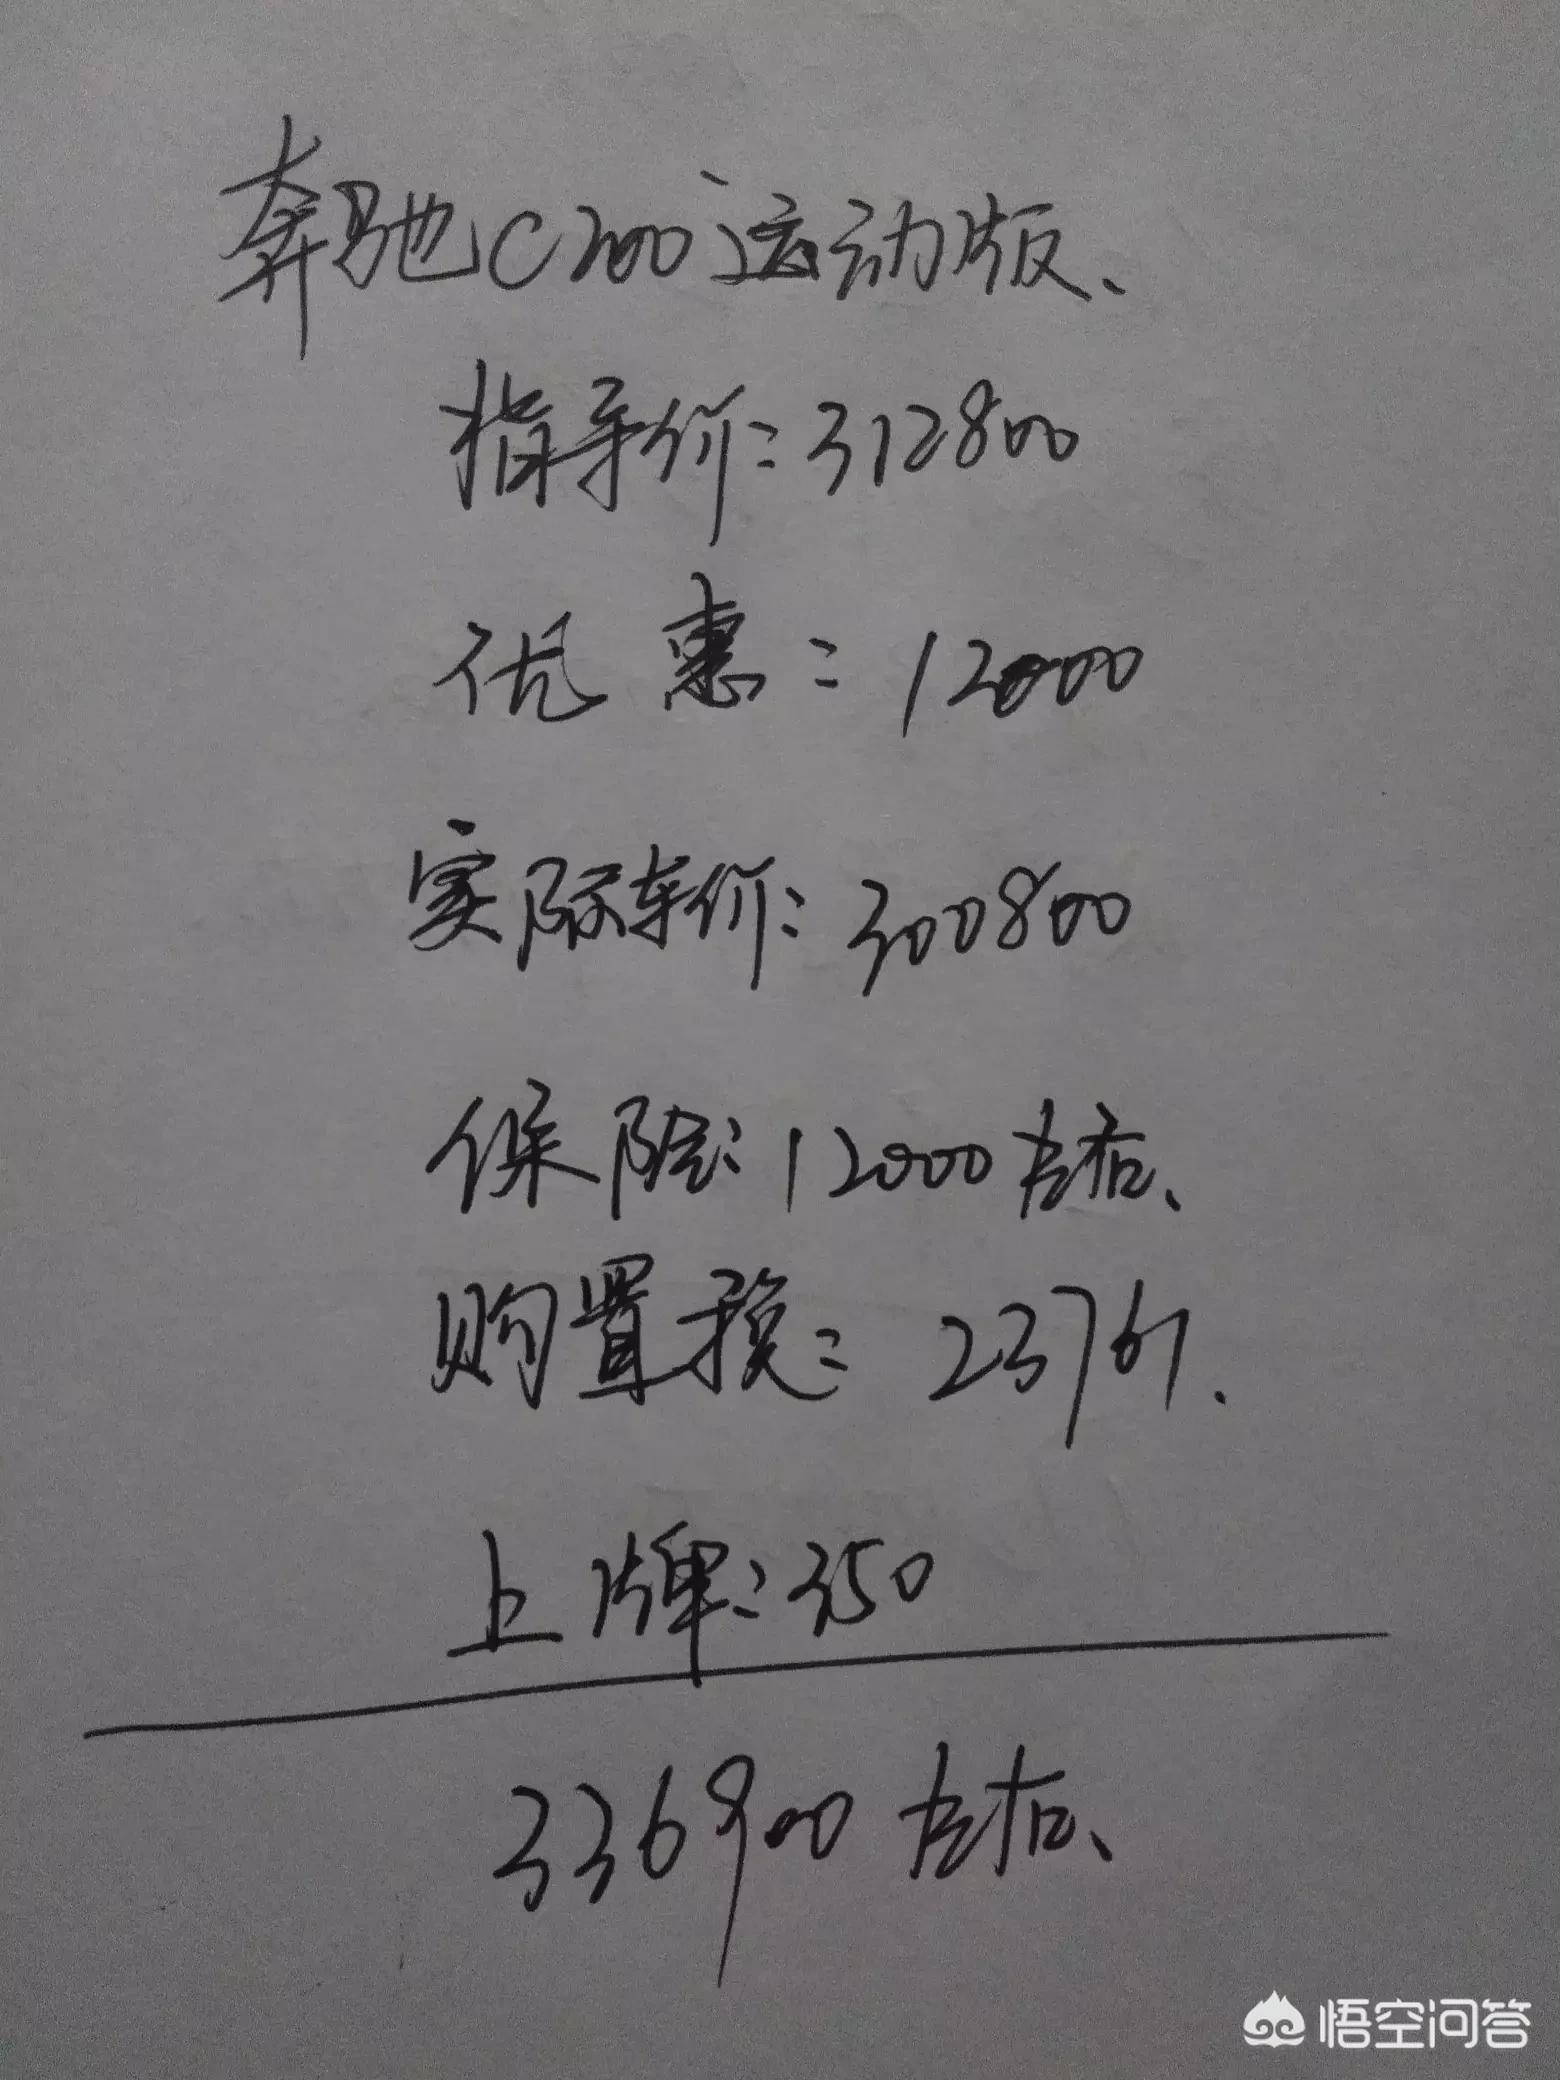 奔驰C200运动版、
指导价：312800
优惠：12000
实际车价：300800
保险：12000左右、
购置税：23761.
上牌：350
336900左右、
悟空问答